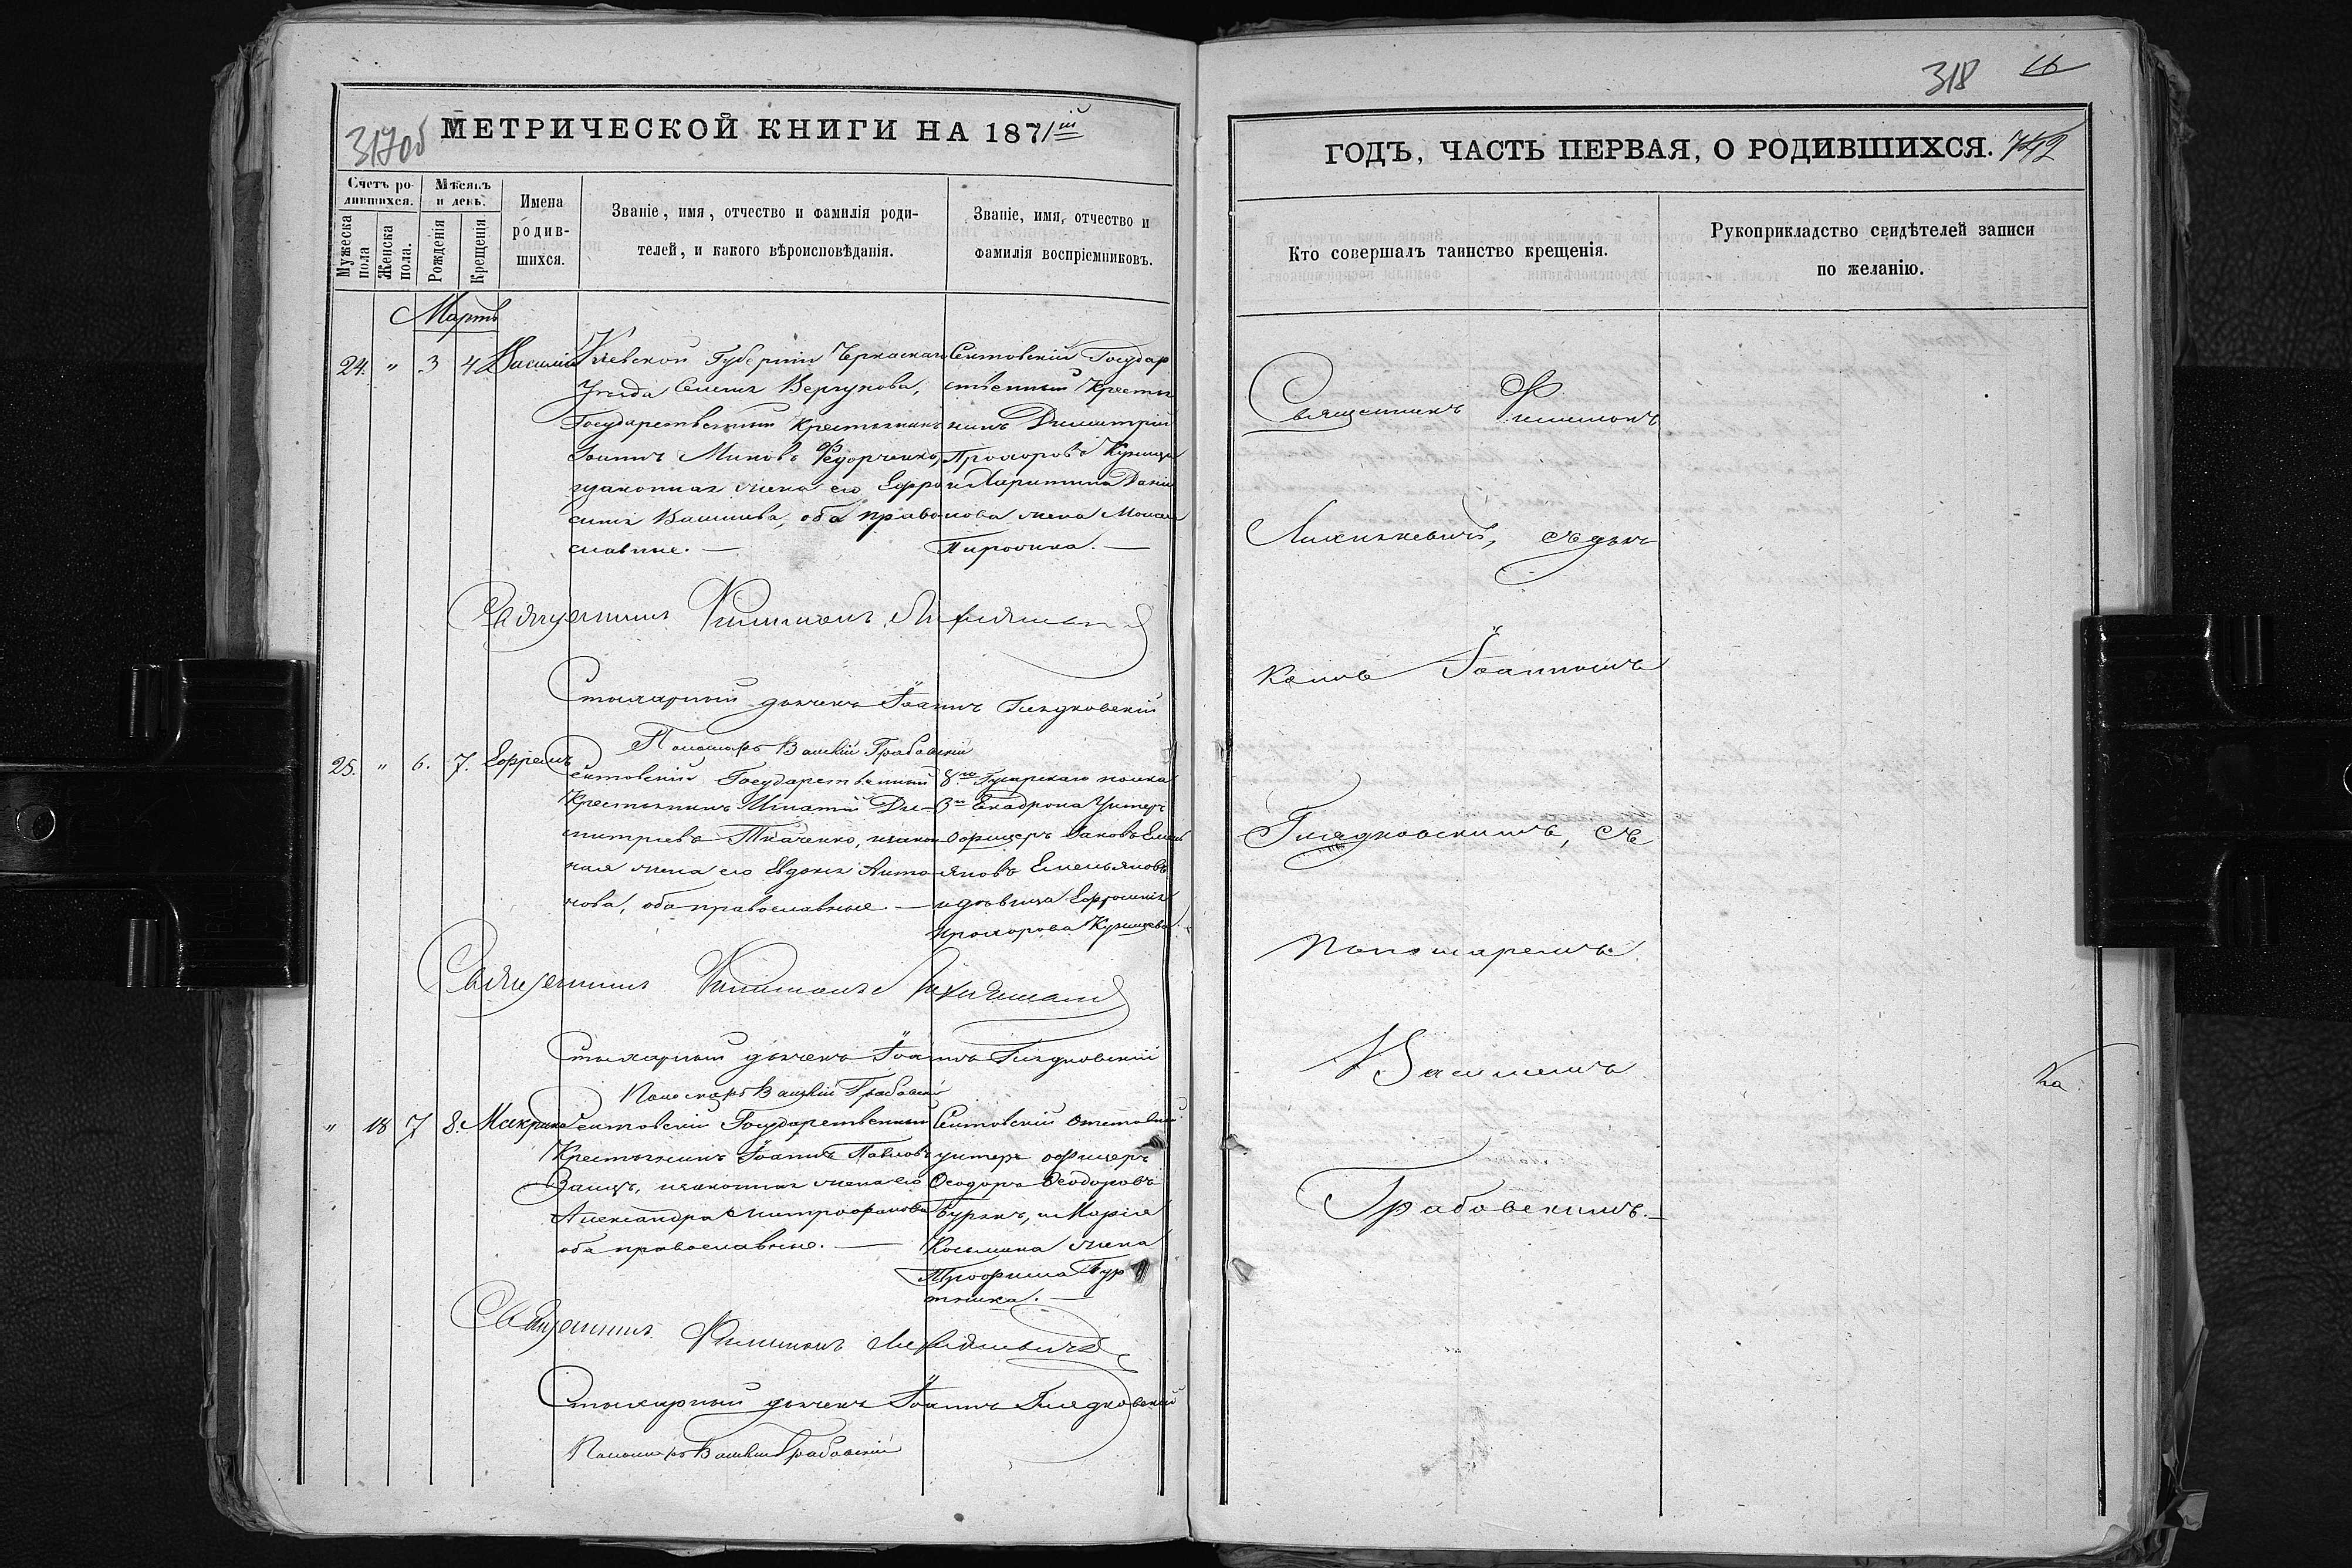 317об
МЕТРИЧЕСКОЙ КНИГИ НА 1871ій
Счетъ родившихся.
Мѣсяцъ и день.
Имена родившихся.
Званіе, имя, отчество и фамилія роди-
телей, и какого вѣроисповѣданія.
Званіе, имя, отчество и
фамилія воспріемниковъ.
Мужеска пола
Женска пола.
Рожденія
Крещенія
Мартъ
24. " 3 4 Василій
Кіевской Губерніи Черкаскаго
Уѣзда Селенія Вергунова,
Государственный Крестьянинъ
Іоаннъ Федорченко,
и законная жена его Ефро
синія Васильева, оба право
славные. —
Сентовскій Государ
ственный Крестья
нинъ Димитрій
Прохоровъ
и Харитина Данiи
лова жена
Священникъ Филимонъ
Стихарный дьячекъ Іоаннъ Глядковскій
Пономарь Василій Грабовскій
25. " 6. 7. Ефремъ
Сентовскій Государственный
Крестьянинъ Игнатій Ди-
митріевъ Ткаченко, и закон
ная жена его Евдокія Анто
нова, оба православные —
8го Гусарскаго полка
3го Ескадрона Унтеръ
Офицеръ Іаковъ Емель
яновъ Емельяновъ
и дѣвица Ефросинія
Прохорова
Священникъ Филимонъ
Стихарный дьячекъ Іоаннъ Глядковскій
Пономарь Василій Грабовскій
" 18 7 8. Макрина
Сентовскій Государственный
Крестьянинъ Іоаннъ Павловъ
Заицъ, и законная жена его
Александра Митрофанова
оба православные. —
Сентовскій отставный
унтеръ офицеръ
Ѳеодоръ Ѳеодоровъ
Бурякъ, и Марія
Косьмина жена
Трофима
Священникъ Филимонъ
Стихарный дьячекъ Іоаннъ Глядковскій
Пономарь Василій Грабовскій
318 16
ГОДЪ, ЧАСТЬ ПЕРВАЯ, О РОДИВШИХСЯ. 742
Кто совершалъ таинство крещенія.
Рукоприкладство свидѣтелей записи
по желанію.
Священникъ Филимонъ
съ дьяч
комъ Іоанномъ
Глядковскимъ, съ
Пономаремъ
Василіемъ
Грабовскимъ. —